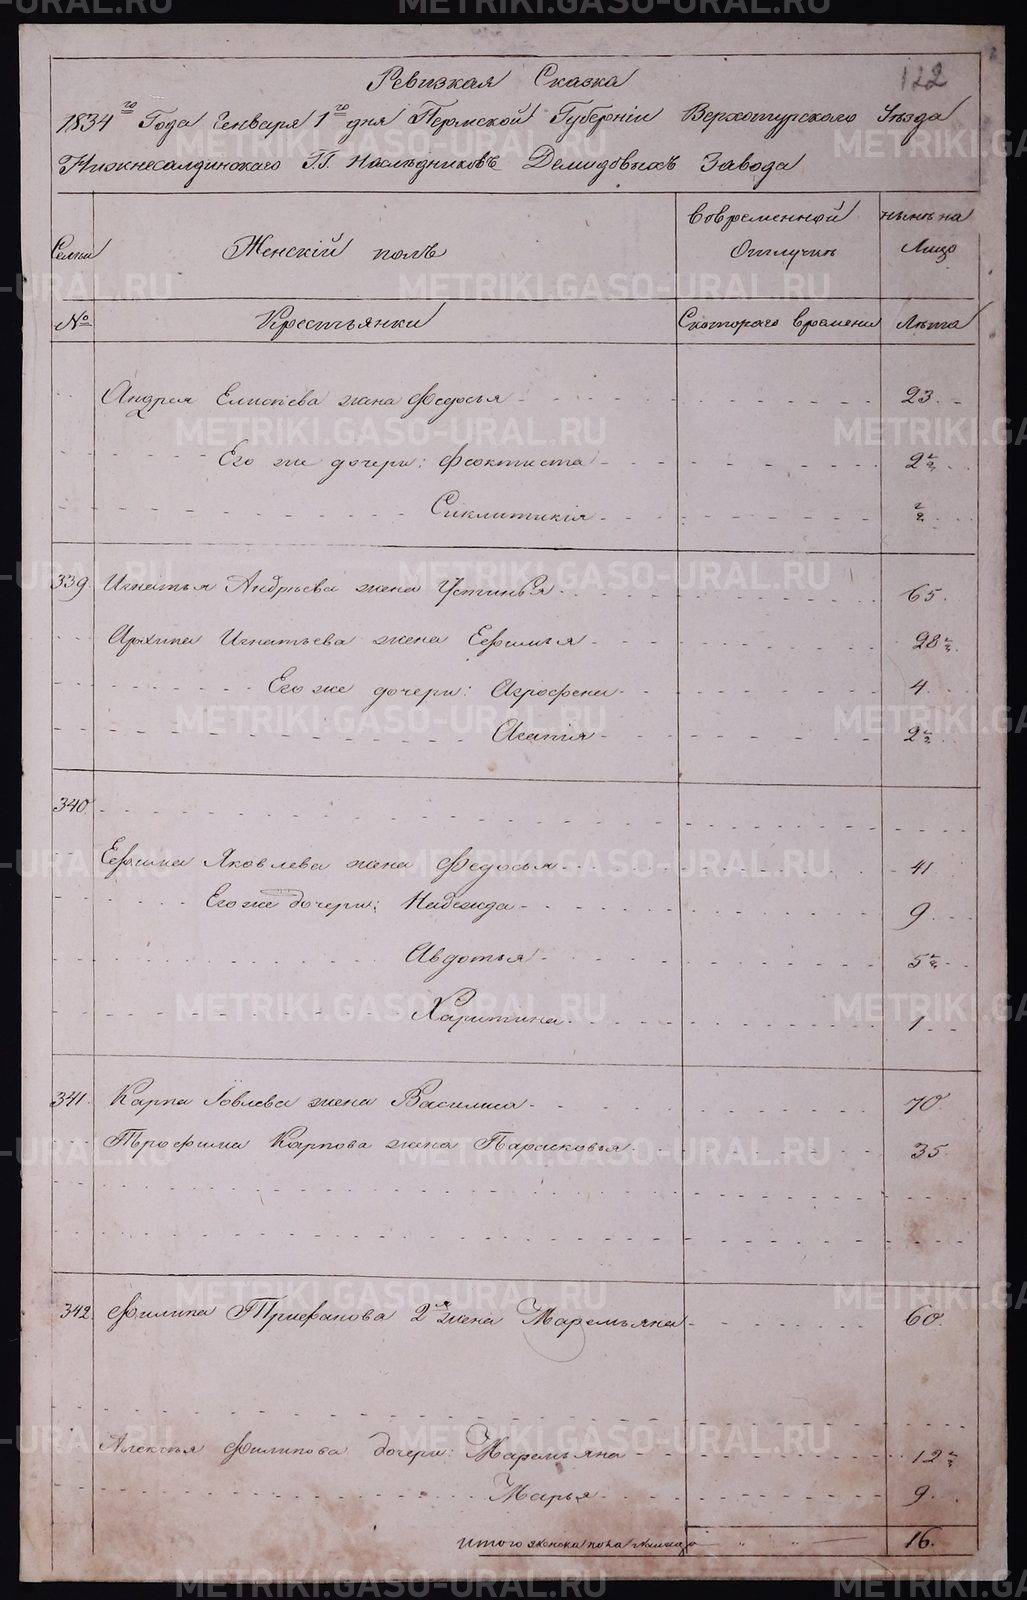 122
Ревизкая Сказка
1834го Года Генваря 1го дня Пермской Губерніи Верхотурского Уезда
Нижнесалдинскаго Г.Г. Наследниковъ Демидовыхъ Завода
Семьи Женскій полъ Вовременной Отлучки ныне на Лицо
№ Крестьянки Скотораго времени Лета
Андрея Елисеева жена Федосья 23
Его же дочери: Феоктиста 2 1/2
Сиклитикія 1/2
339. Игнатья Андреева жена Устинья 65.
Архипа Игнатьева жена Ефимья 28 1/2.
Его же дочери: Аграфена 4
Агапия 2 1/2
340.
Ефима Яковлева жена Федосья 41
Его же дочери: Надежда 9
Авдотья 5 1/2
Харитина 1
341. Карпа Іовлева жена Василиса 70
Трофима Карпова жена Парасковья 35
342. Филипа Трифанова 2я жена Маремьяна 60.
Алексея Филипова дочери: Маремьяна 12 1/2
Марья 9.
Итого женска пола налицо 16.
METRIKI.GASO-URAL.RU